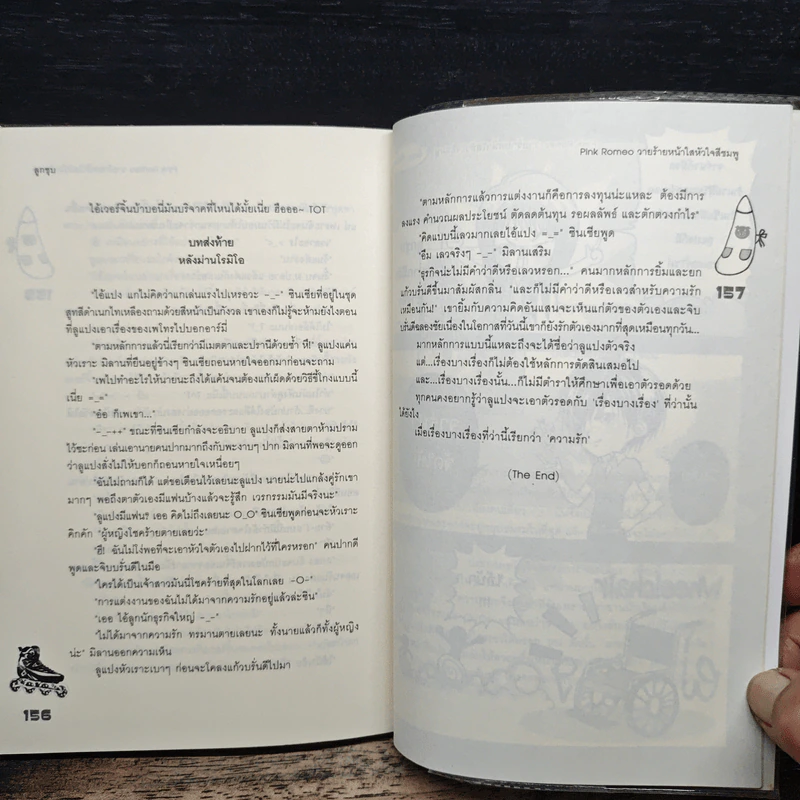 ลูกชุบ
ไอ้เวอร์จิ้นบ้าบอนี่มันบริจาคที่ไหนได้มั้ยเนี่ย ฮืออออ~ TOT
บทส่งท้าย
หลังม่านโรมิโอ
"ไอ้แปง แกไม่คิดว่าแกเล่นแรงไปเหรอวะ -_-" ซินเซียที่อยู่ในชุด
สูทสีดำเนกไทเหลืองถามด้วยสีหน้าเป็นกังวล เขาเองก็ไม่รู้จะห้ามยังไงตอน
ที่ลูแปงเอาเรื่องของเพโทรไปบอกอาร์มี่
"ตามหลักการแล้วนี่เรียกว่ามีเมตตาและปรานีด้วยซ้ำ หึ!" ลูแปงแค่น
หัวเราะ มิลานที่ยืนอยู่ข้างๆ ซินเซียถอนหายใจออกมาก่อนจะถาม
"เพไปทำอะไรให้นายน่ะถึงได้แค้นจนต้องแก้เผ็ดด้วยวิธีขี้โกงแบบนี้
เนี่ย =_="
"อ๋อ ก็เพเขา..."
"-_-++" ขณะที่ซินเซียกำลังจะอธิบาย ลูแปงก็ส่งสายตาห้ามปราม
ไว้ซะก่อน เล่นเอานายคนปากมากถึงกับพะงาบๆ ปาก มิลานที่พอจะดูออก
ว่าลูแปงสั่งไม่ให้บอกก็ถอนหายใจเหนื่อยๆ
"ฉันไม่ถามก็ได้ แต่ขอเตือนไว้เลยนะลูแปง นายน่ะไปแกล้งคู่รักเขา
มากๆ พอถึงตาตัวเองมีแฟนบ้างแล้วจะรู้สึก เวรกรรมมันมีจริงนะ"
"ลูแปงมีแฟน? เออ คิดไม่ถึงเลยนะ O_O" ซินเซียพูดก่อนจะหัวเราะ
คิกคัก "ผู้หญิงโชคร้ายตายเลยว่ะ"
"ฮึ! ฉันไม่โง่พอที่จะเอาหัวใจตัวเองไปฝากไว้ที่ใครหรอก" คนปากดี
พูดและจิบบรั่นดีในมือ
"ใครได้เป็นเจ้าสาวมันนี่โชคร้ายที่สุดในโลกเลย -O-"
"การแต่งงานของฉันไม่ได้มาจากความรักอยู่แล้วล่ะซิน"
"เออ ไอ้ลูกนักธุรกิจใหญ่ -_-"
"ไม่ได้มาจากความรัก ทรมานตายเลยนะ ทั้งนายแล้วก็ทั้งผู้หญิง
น่ะ" มิลานออกความเห็น
ลูแปงหัวเราะเบาๆ ก่อนจะโคลงแก้วบรั่นดีไปมา
156
Pink Romeo วายร้ายหน้าใสหัวใจสีชมพู
"ตามหลักการแล้วการแต่งงานก็คือการลงทุนน่ะแหละ ต้องมีการ
ลงแรง คำนวณผลประโยชน์ ตัดลดต้นทุน รอผลลัพธ์ และตักตวงกำไร"
"คิดแบบนี้เลวมากเลยไอ้แปง =_=" ซินเซียพูด
"อืม เลวจริงๆ -_-" มิลานเสริม
"ธุรกิจน่ะไม่มีคำว่าดีหรือเลวหรอก..." คนมากหลักการยิ้มและยก
แก้วบรั่นดีขึ้นมาสัมผัสกลิ่น "และก็ไม่มีคำว่าดีหรือเลวสำหรับความรัก
เหมือนกัน!" เขายิ้มกับความคิดอันแสนจะเห็นแก่ตัวของตัวเองและจิบ
บรั่นดีฉลองชัยเนื่องในโอกาสที่วันนี้เขาก็ยังรักตัวเองมากที่สุดเหมือนทุกวัน...
มากหลักการแบบนี้แหละถึงจะได้ชื่อว่าลูแปงตัวจริง
แต่...เรื่องบางเรื่องก็ไม่ต้องใช้หลักการตัดสินเสมอไป
และ...เรื่องบางเรื่องนั้น...ก็ไม่มีตำราให้ศึกษาเพื่อเอาตัวรอดด้วย
ทุกคนคงอยากรู้ว่าลูแปงจะเอาตัวรอดกับ 'เรื่องบางเรื่อง' ที่ว่านั้น
ได้ยังไง
เมื่อเรื่องบางเรื่องที่ว่านี้เรียกว่า 'ความรัก'
(The End)
157